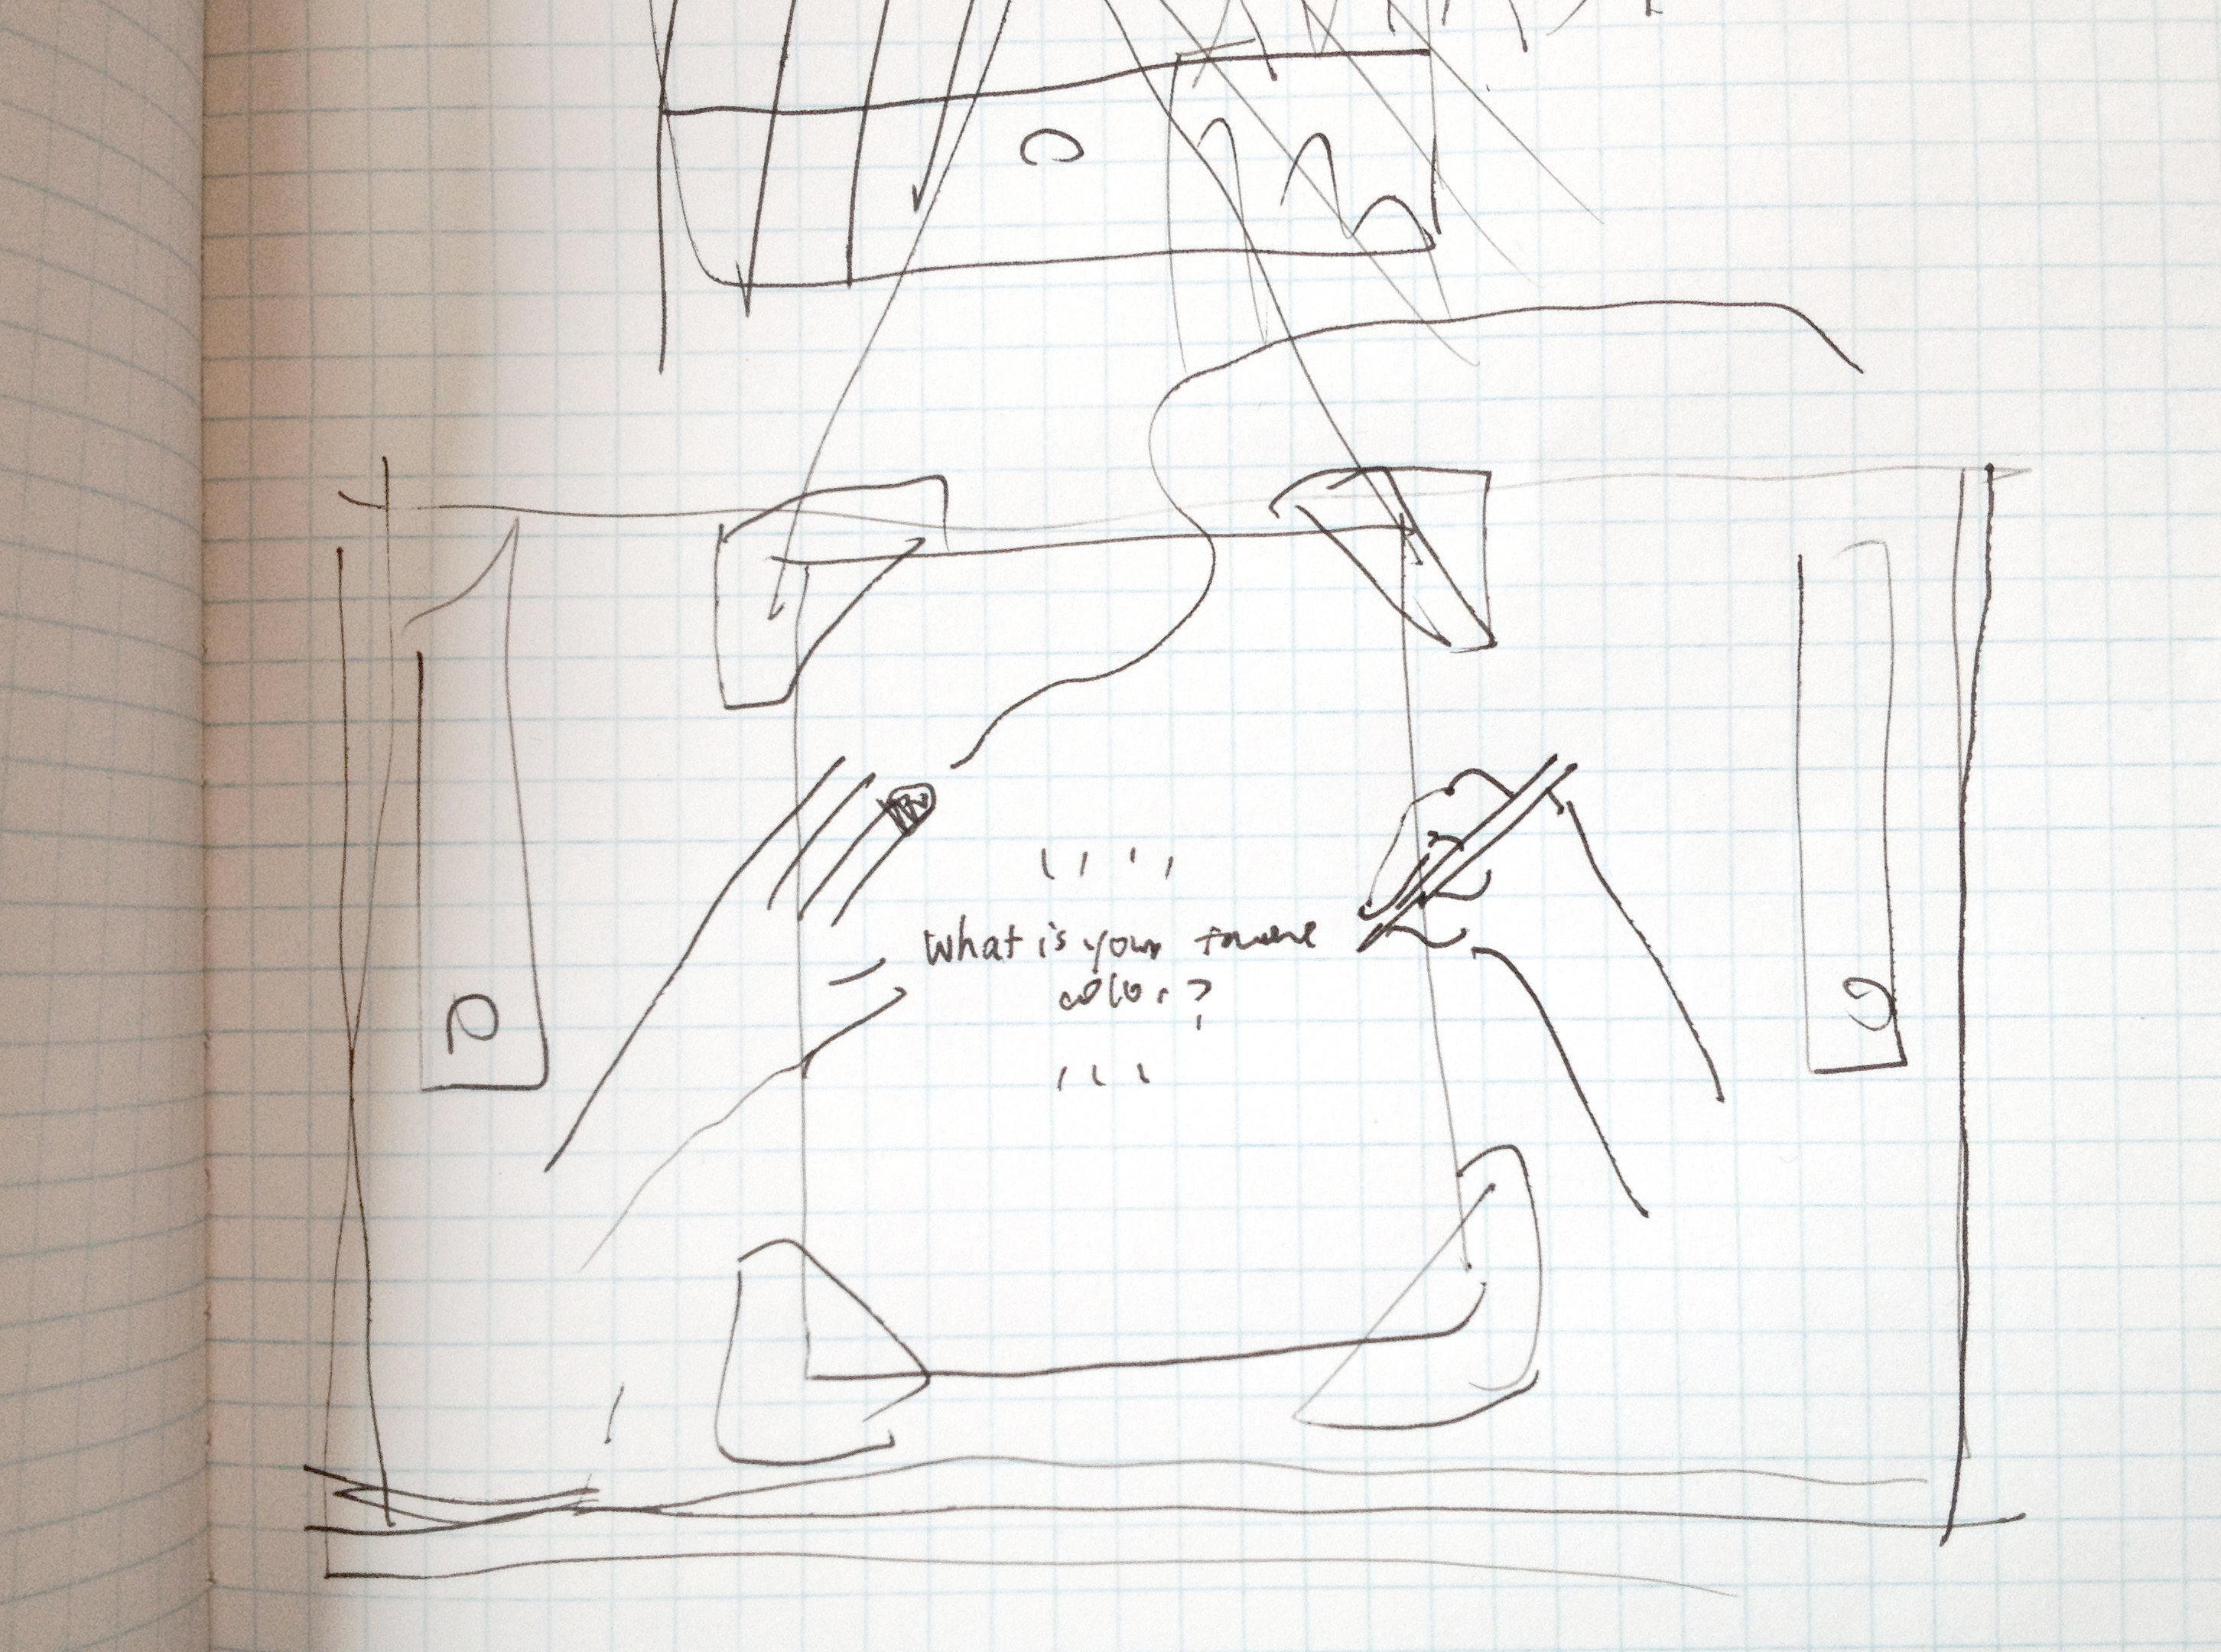 What is your favorite
color?